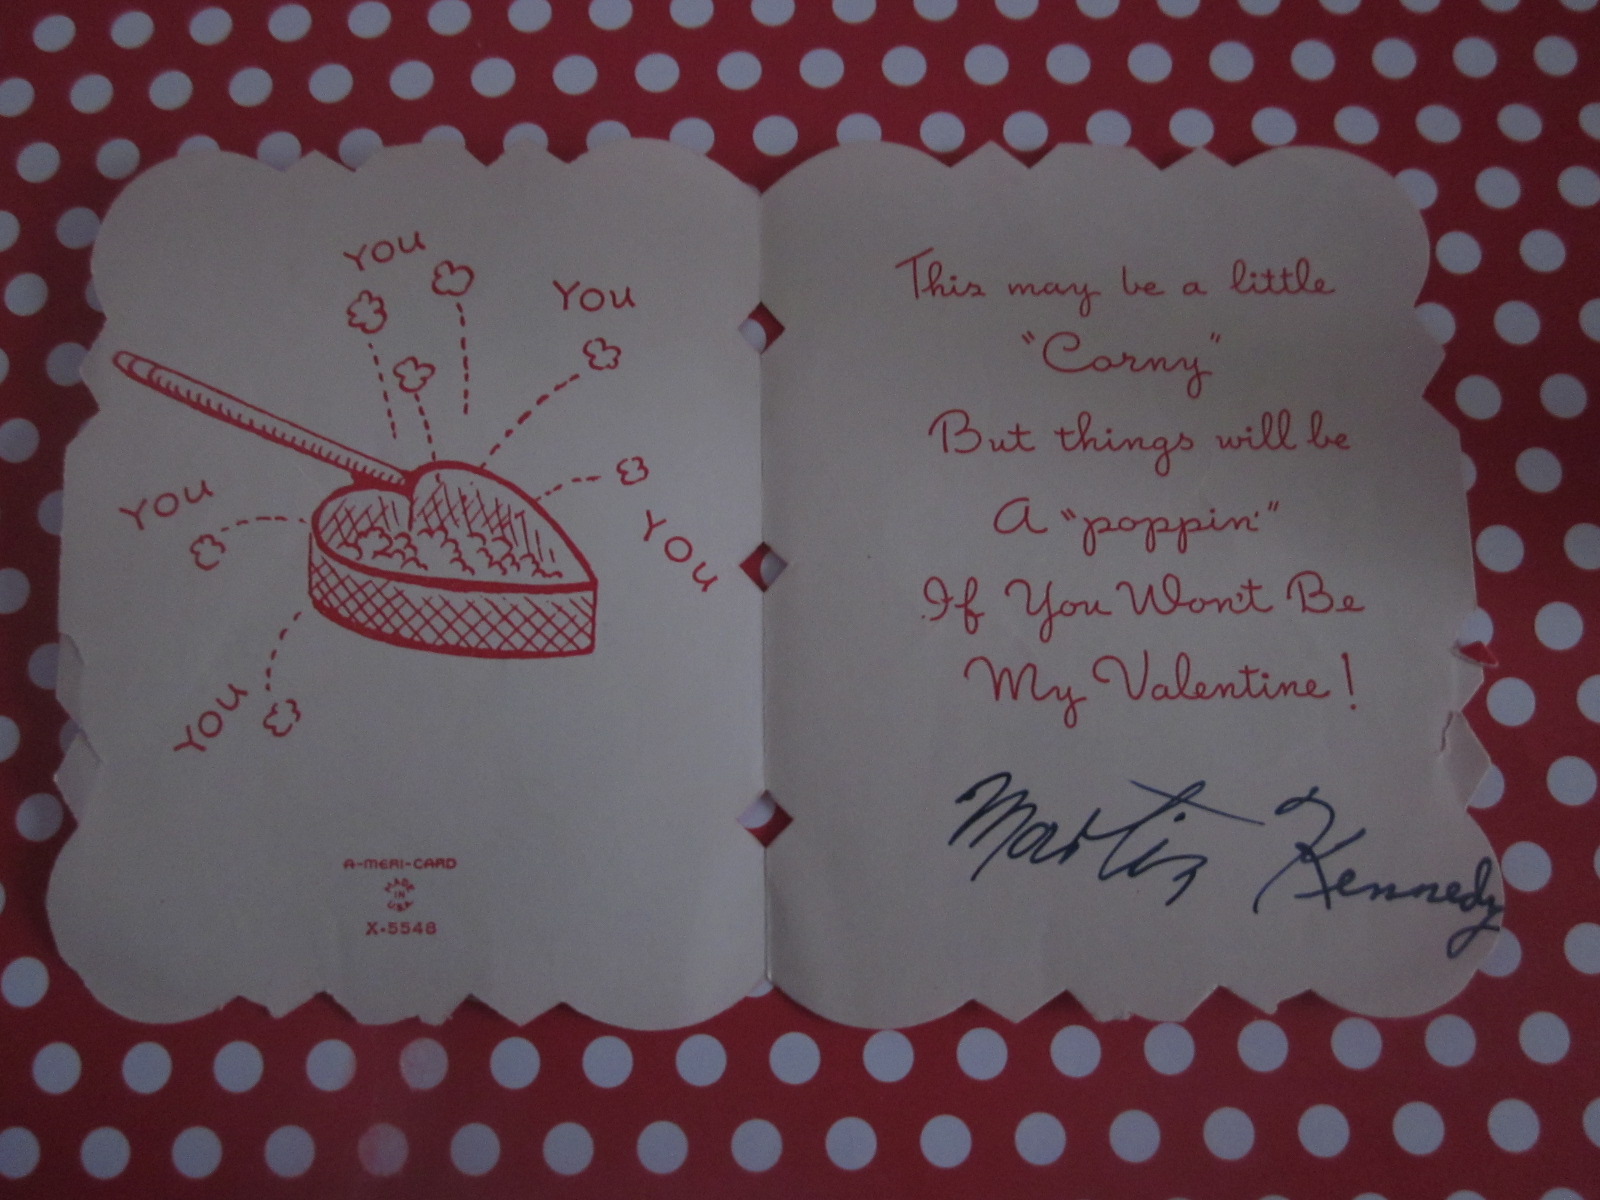 YOU
YOU
YOU
YOU
YOU
A-MERI-CARD
MADE
IN
U.S.A.
X-5548
This may be a little
"Corny"
But things will be
A "poppin'"
If You Won't Be
My Valentine!
Martin Kennedy